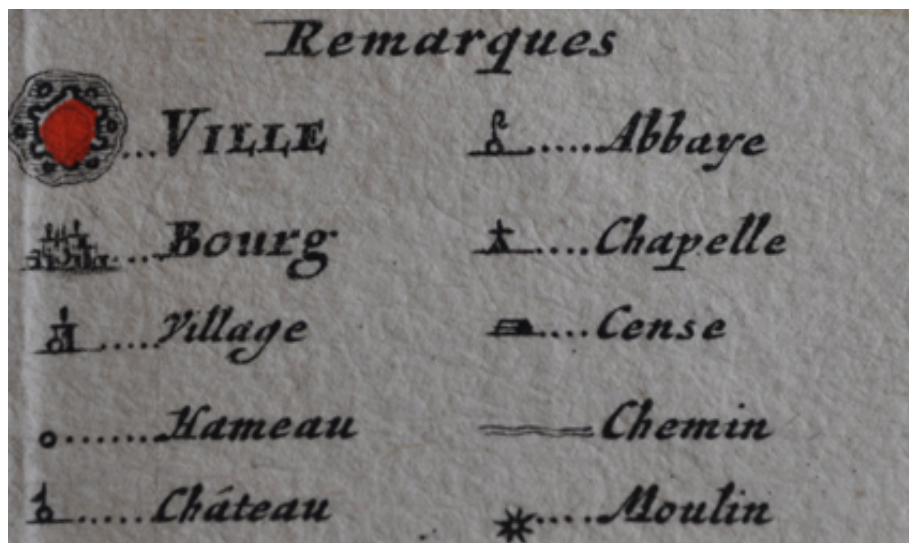 Remarques
VILLE
Bourg
Village
Hameau
Château
Abbaye
Chapelle
Cense
Chemin
Moulin